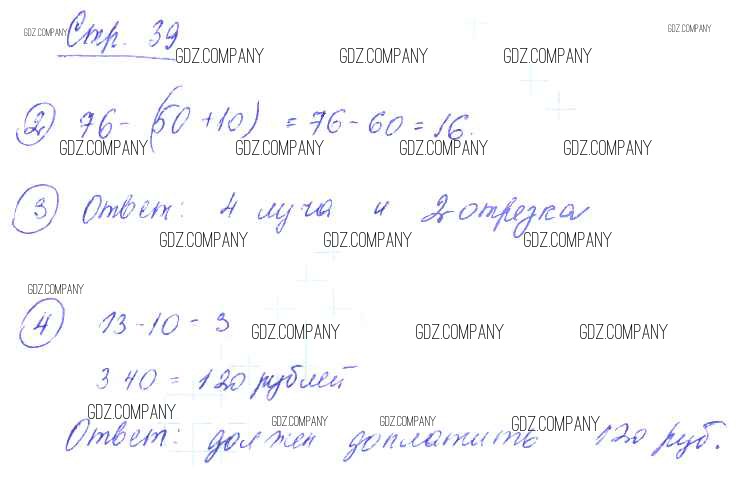 GDZ.COMPANY
Стр. 39
GDZ.COMPANY GDZ.COMPANY GDZ.COMPANY GDZ.COMPANY
2 76 - (50 + 10) = 76 - 60 = 16.
GDZ.COMPANY GDZ.COMPANY GDZ.COMPANY GDZ.COMPANY
3 Ответ: 4 луча и 2 отрезка
GDZ.COMPANY GDZ.COMPANY GDZ.COMPANY
GDZ.COMPANY
4 13 - 10 = 3
GDZ.COMPANY GDZ.COMPANY GDZ.COMPANY
3 40 = 120 рублей
GDZ.COMPANY GDZ.COMPANY GDZ.COMPANY GDZ.COMPANY
Ответ: должен доплатить 120 руб.